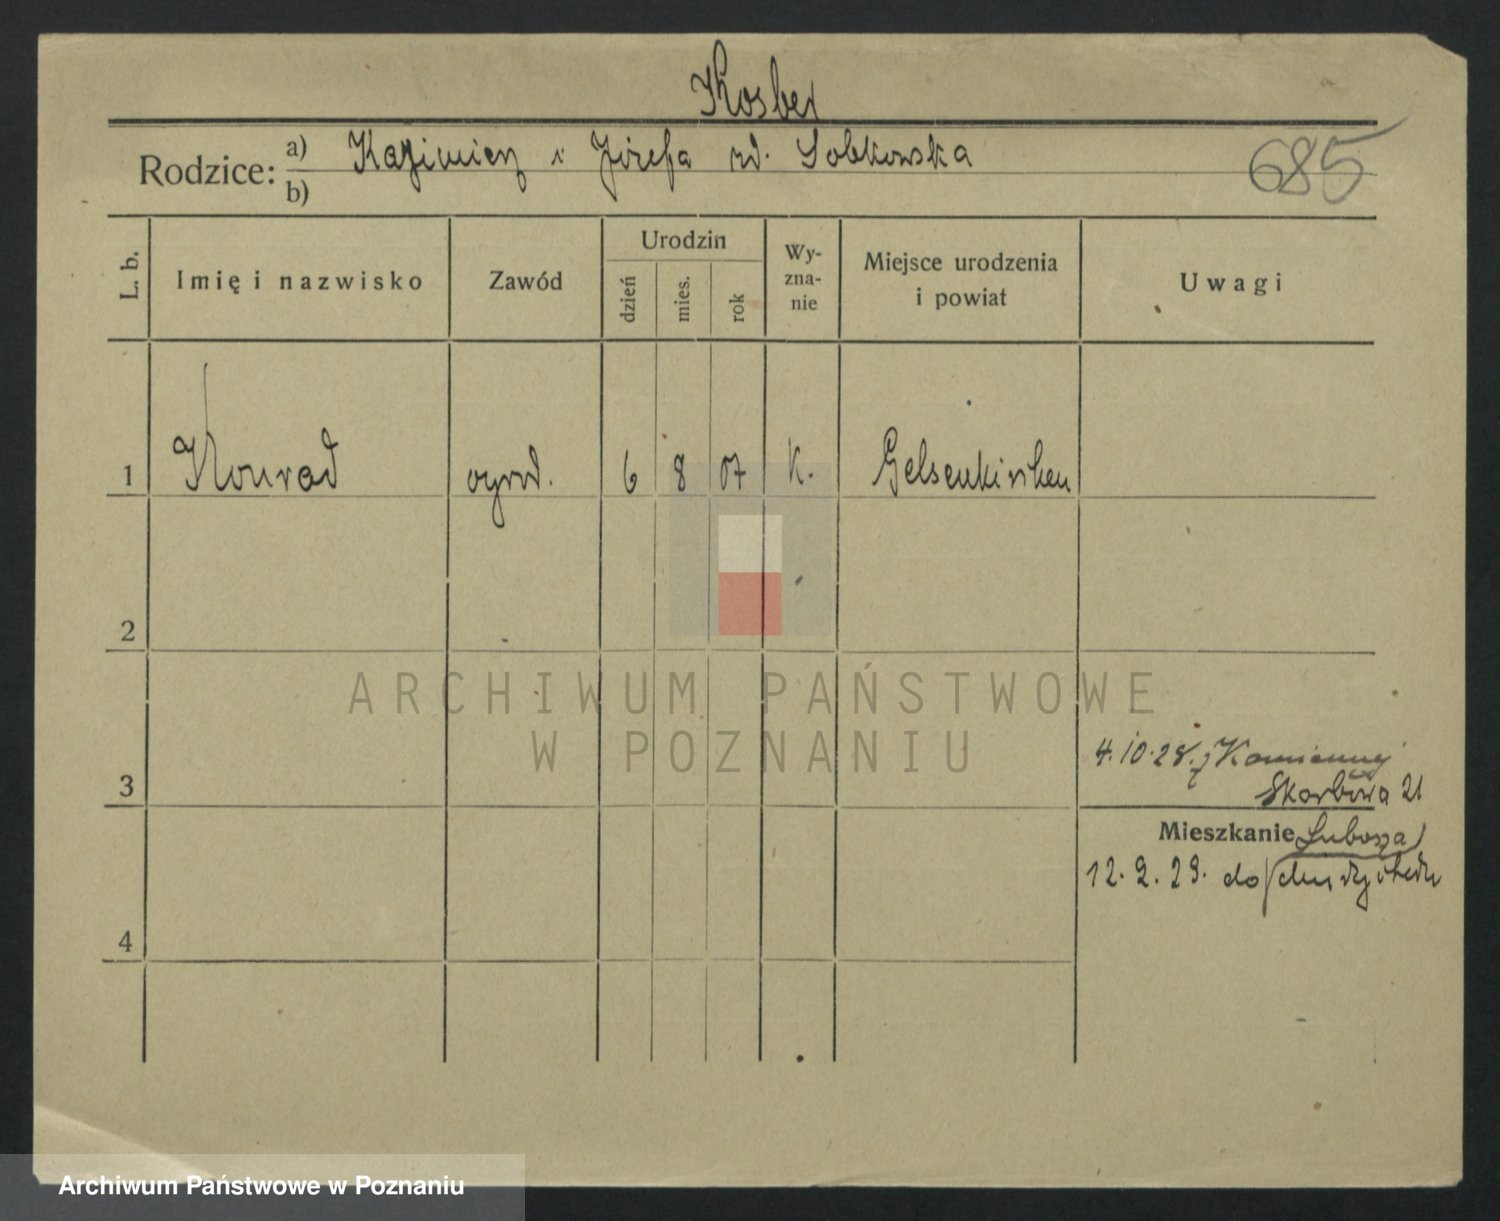 Kosber
Rodzice: a) Kazimierz i Józefa rd. Sobkowska
b)
685
L. b.
Imię i nazwisko
Zawód
Urodzin
dzień
mies.
rok
Wy-
zna-
nie
Miejsce urodzenia
i powiat
Uwagi
1 Konrad ogrod. 6 8 07 k. Gelsenkirchen
2
ARCHIWUM PAŃSTWOWE
W POZNANIU
4.10.28. z
Skarbowa 21
3
Mieszkanie
12. 2. 29. do
4
Archiwum Państwowe w Poznaniu